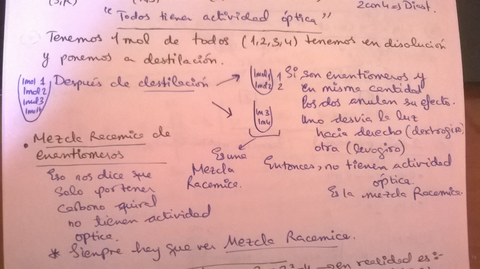 (S,R)
2 con 4 es Diast.
"Todos tienen actividad óptica"
Tenemos 1 mol de todos (1,2,3,4) tenemos en disolución
y ponemos a destilación.
1mol 1
1mol 2
1mol 3
1mol 4
Después de destilación
1mol 1
1mol 2
1m 3
1m 4
Si son enantiomeros y
en misma cantidad
los dos anulan su efecto.
Uno desvia la luz
hacia derecho (dextrogiro)
otra (levogiro)
Entonces, no tienen actividad
óptica.
Es la mezcla Racemica.
Es una
Mezcla
Racemica.
• Mezcla Racemica de
enantiomeros
Eso nos dice que
solo por tener
carbono quiral
no tienen actividad
optica.
* Siempre hay que ver Mezcla Racemica.
en realidad es